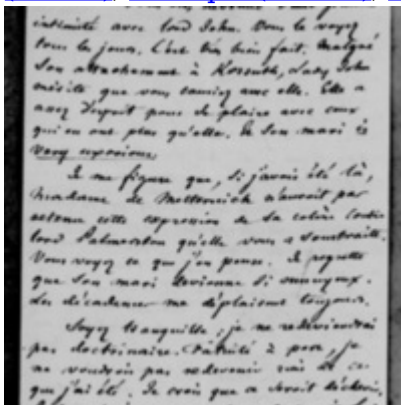 intimité avec lord John. Vous le voyez
tous les jours. C'est très bien fait. Malgré
son attachement à Kossuth, Lady John
mérite que vous causiez avec elle. Elle a
assez d'esprit pour se plaire avec ceux
qui en ont plus qu'elle. Et son mari is
very uxorious.
Je me figure que, si j'avais été là,
Madame de Metternich n'auroit pas
retenu cette expression de sa colère contre
lord Palmerston qu'elle vous a soustraite.
Vous voyez ce que j'en pense. Je regrette
que son mari devienne si ennuyeux.
Les décadences me déplaisent toujours.
Soyez tranquille ; je ne redeviendrai
pas doctrinaire. Vanité à part, je
ne voudrois pas redevenir rien de ce
que j'ai été. Je crois que ce seroit déchoir,